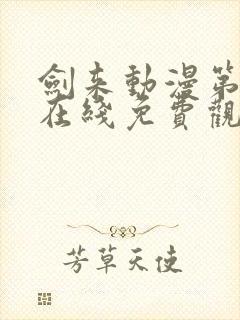 劍来動漫第
在綫免費觀
芳草天使